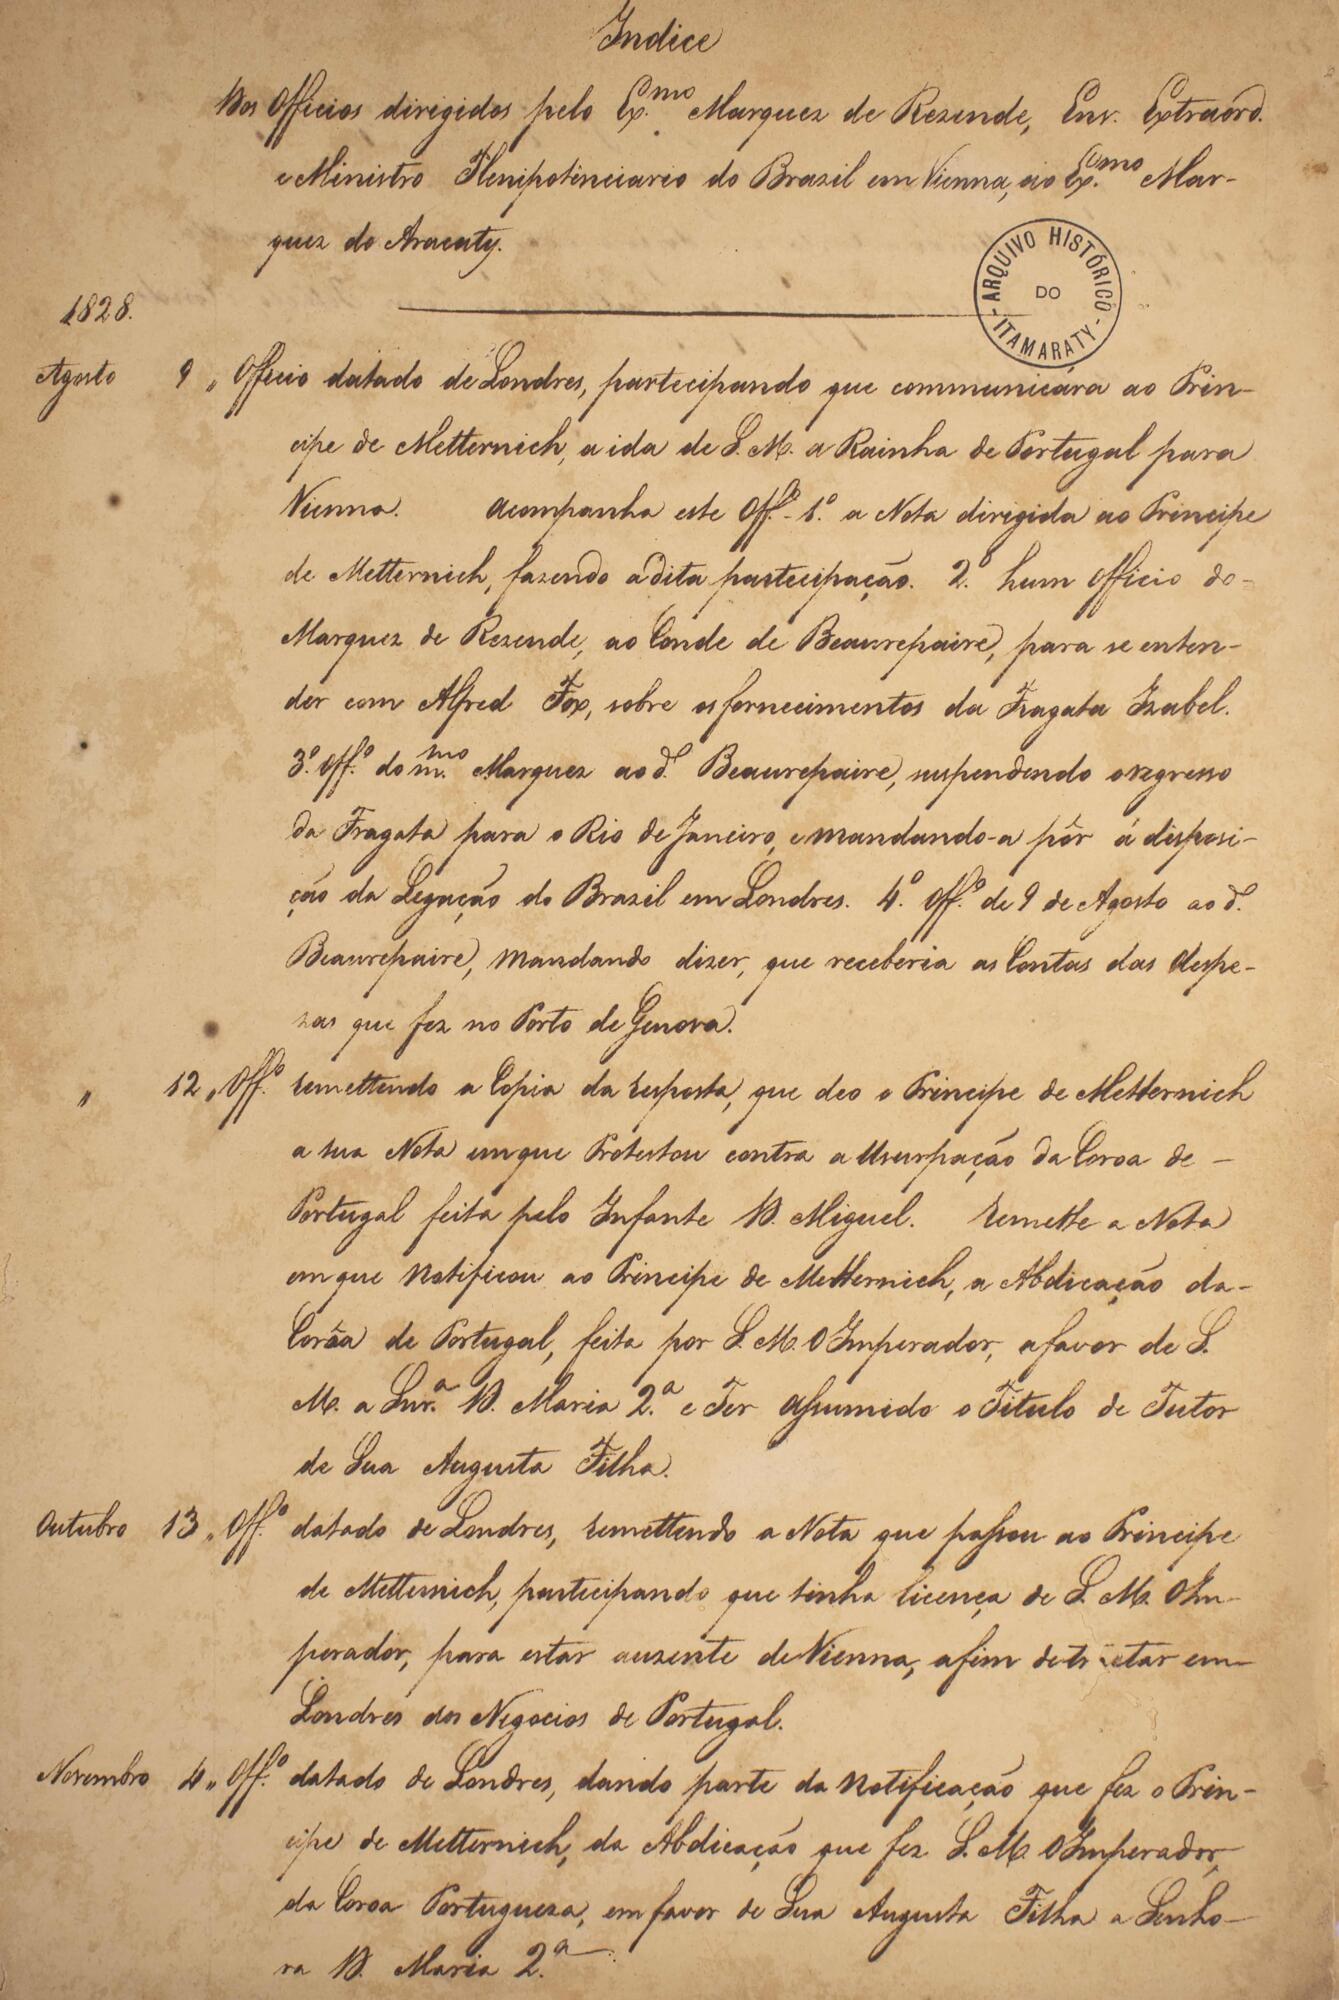 Indice
Dos Officios dirigidos pelo Ex.mo Marquez de Rezende, Env. Extraord.
e Ministro Plenipotenciario do Brazil em Vienna, ao Ex.mo Mar-
quez do Aracaty.
ARQUIVO HISTÓRICO
DO
- ITAMARATY -
1828.
Agosto 9 „ Officio datado de Londres, partecipando que communicára ao Prin-
cipe de Metternich, a ida de S. M. a Rainha de Portugal para
Vienna. Acompanha este Off.º - 1.º a Nota dirigida ao Principe
de Metternich, fazendo a dita partecipação. 2.º hum Officio do-
Marquez de Rezende, ao Conde de Beaurepaire, para se enten-
der com Alfred Fox, sobre os fornecimentos da Fragata Izabel.
3.º Off.º do m.mo Marquez ao d.º Beaurepaire, suspendendo o regresso
da Fragata para o Rio de Janeiro, e mandando-a pôr á disposi-
ção da Legação do Brazil em Londres. 4.º Off.º de 9 de Agosto ao d.º
Beaurepaire, mandando dizer, que receberia as Contas das despe-
zas que fez no Porto de Genova.
„ 12 „ Off.º remettendo a Copia da resposta, que deo o Principe de Metternich
a sua Nota em que Protestou contra a Usurpação da Coroa de -
Portugal feita pelo Infante D. Miguel. Remette a Nota
em que Notificou ao Principe de Metternich, a Abdicação da-
Corôa de Portugal, feita por S. M. O Imperador, a favor de S.
M. a Snr.a D. Maria 2.a e Ter assumido o Titulo de Tutor
de Sua Augusta Filha.
Outubro 13 „ Off.º datado de Londres, remettendo a Nota que passou ao Principe
de Metternich, partecipando que tinha licença de S. M. O Im-
perador, para estar auzente de Vienna, afim de tratar em-
Londres dos Negocios de Portugal.
Novembro 4 „ Off.º datado de Londres, dando parte da Notificação que fez o Prin-
cipe de Metternich, da Abdicação que fez S. M. O Imperador,
da Coroa Portugueza, em favor de Sua Augusta Filha a Senho-
ra D. Maria 2.a